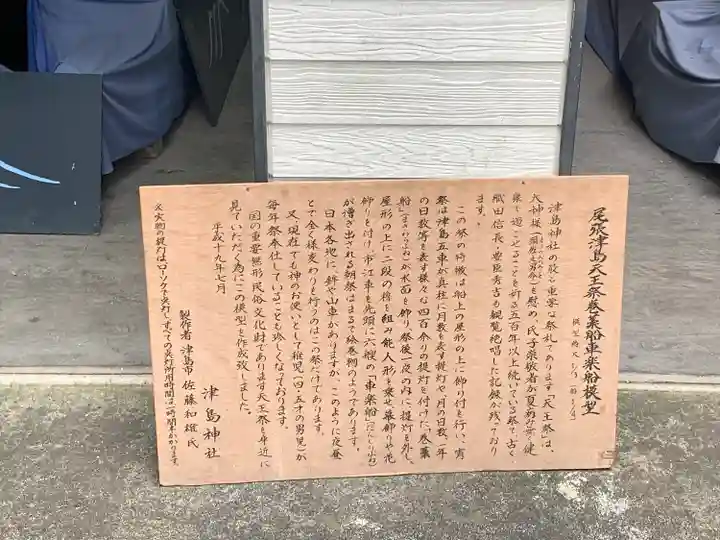 尾張津島天王祭巻藁船車楽船模型
模型縮尺 1/5
津島神社の最も重要な祭礼であります「天王祭」は、
大神様(須佐之男命)を慰め、氏子崇敬者が夏病みせず健
康に過ごせることを祈る五百年以上続いている祭で古く
織田信長・豊臣秀吉も観覧絶唱した記録が残っており
ます。
この祭の特徴は船上の屋形の上に飾り付を行い、宵
祭は津島五車が真柱に月数を表す提灯や月の日数、一年
の日数等を表す様々な四百余りの提灯を付けた、「巻藁
船」(まきわらぶね)が水面を飾り、祭後一夜の内に提灯を外し、
屋形の上に二段の楼を組み能人形を乗せ幕飾りや花
飾りを付け、市江車を先頭に六艘の「車楽船」(だんじりぶね)
が漕ぎ出される朝祭はまるで絵巻物のようであります。
日本各地に、鉾や山車がありますが、このように夜昼
とで全く様変わりを行うのはこの祭だけであります。
又、現在でも神のお使いとして稚児(四・五才の男児)が
毎年祭奉仕していることも珍しくなっております。
国の重要無形民俗文化財であります天王祭を身近に
見ていただく為にこの模型を作成致しました。
平成十九年七月
津島神社
製作者 津島市 佐藤和雄氏
※実物の提灯はローソクで点灯し、すべての点灯所用時間は一時間半かかります。